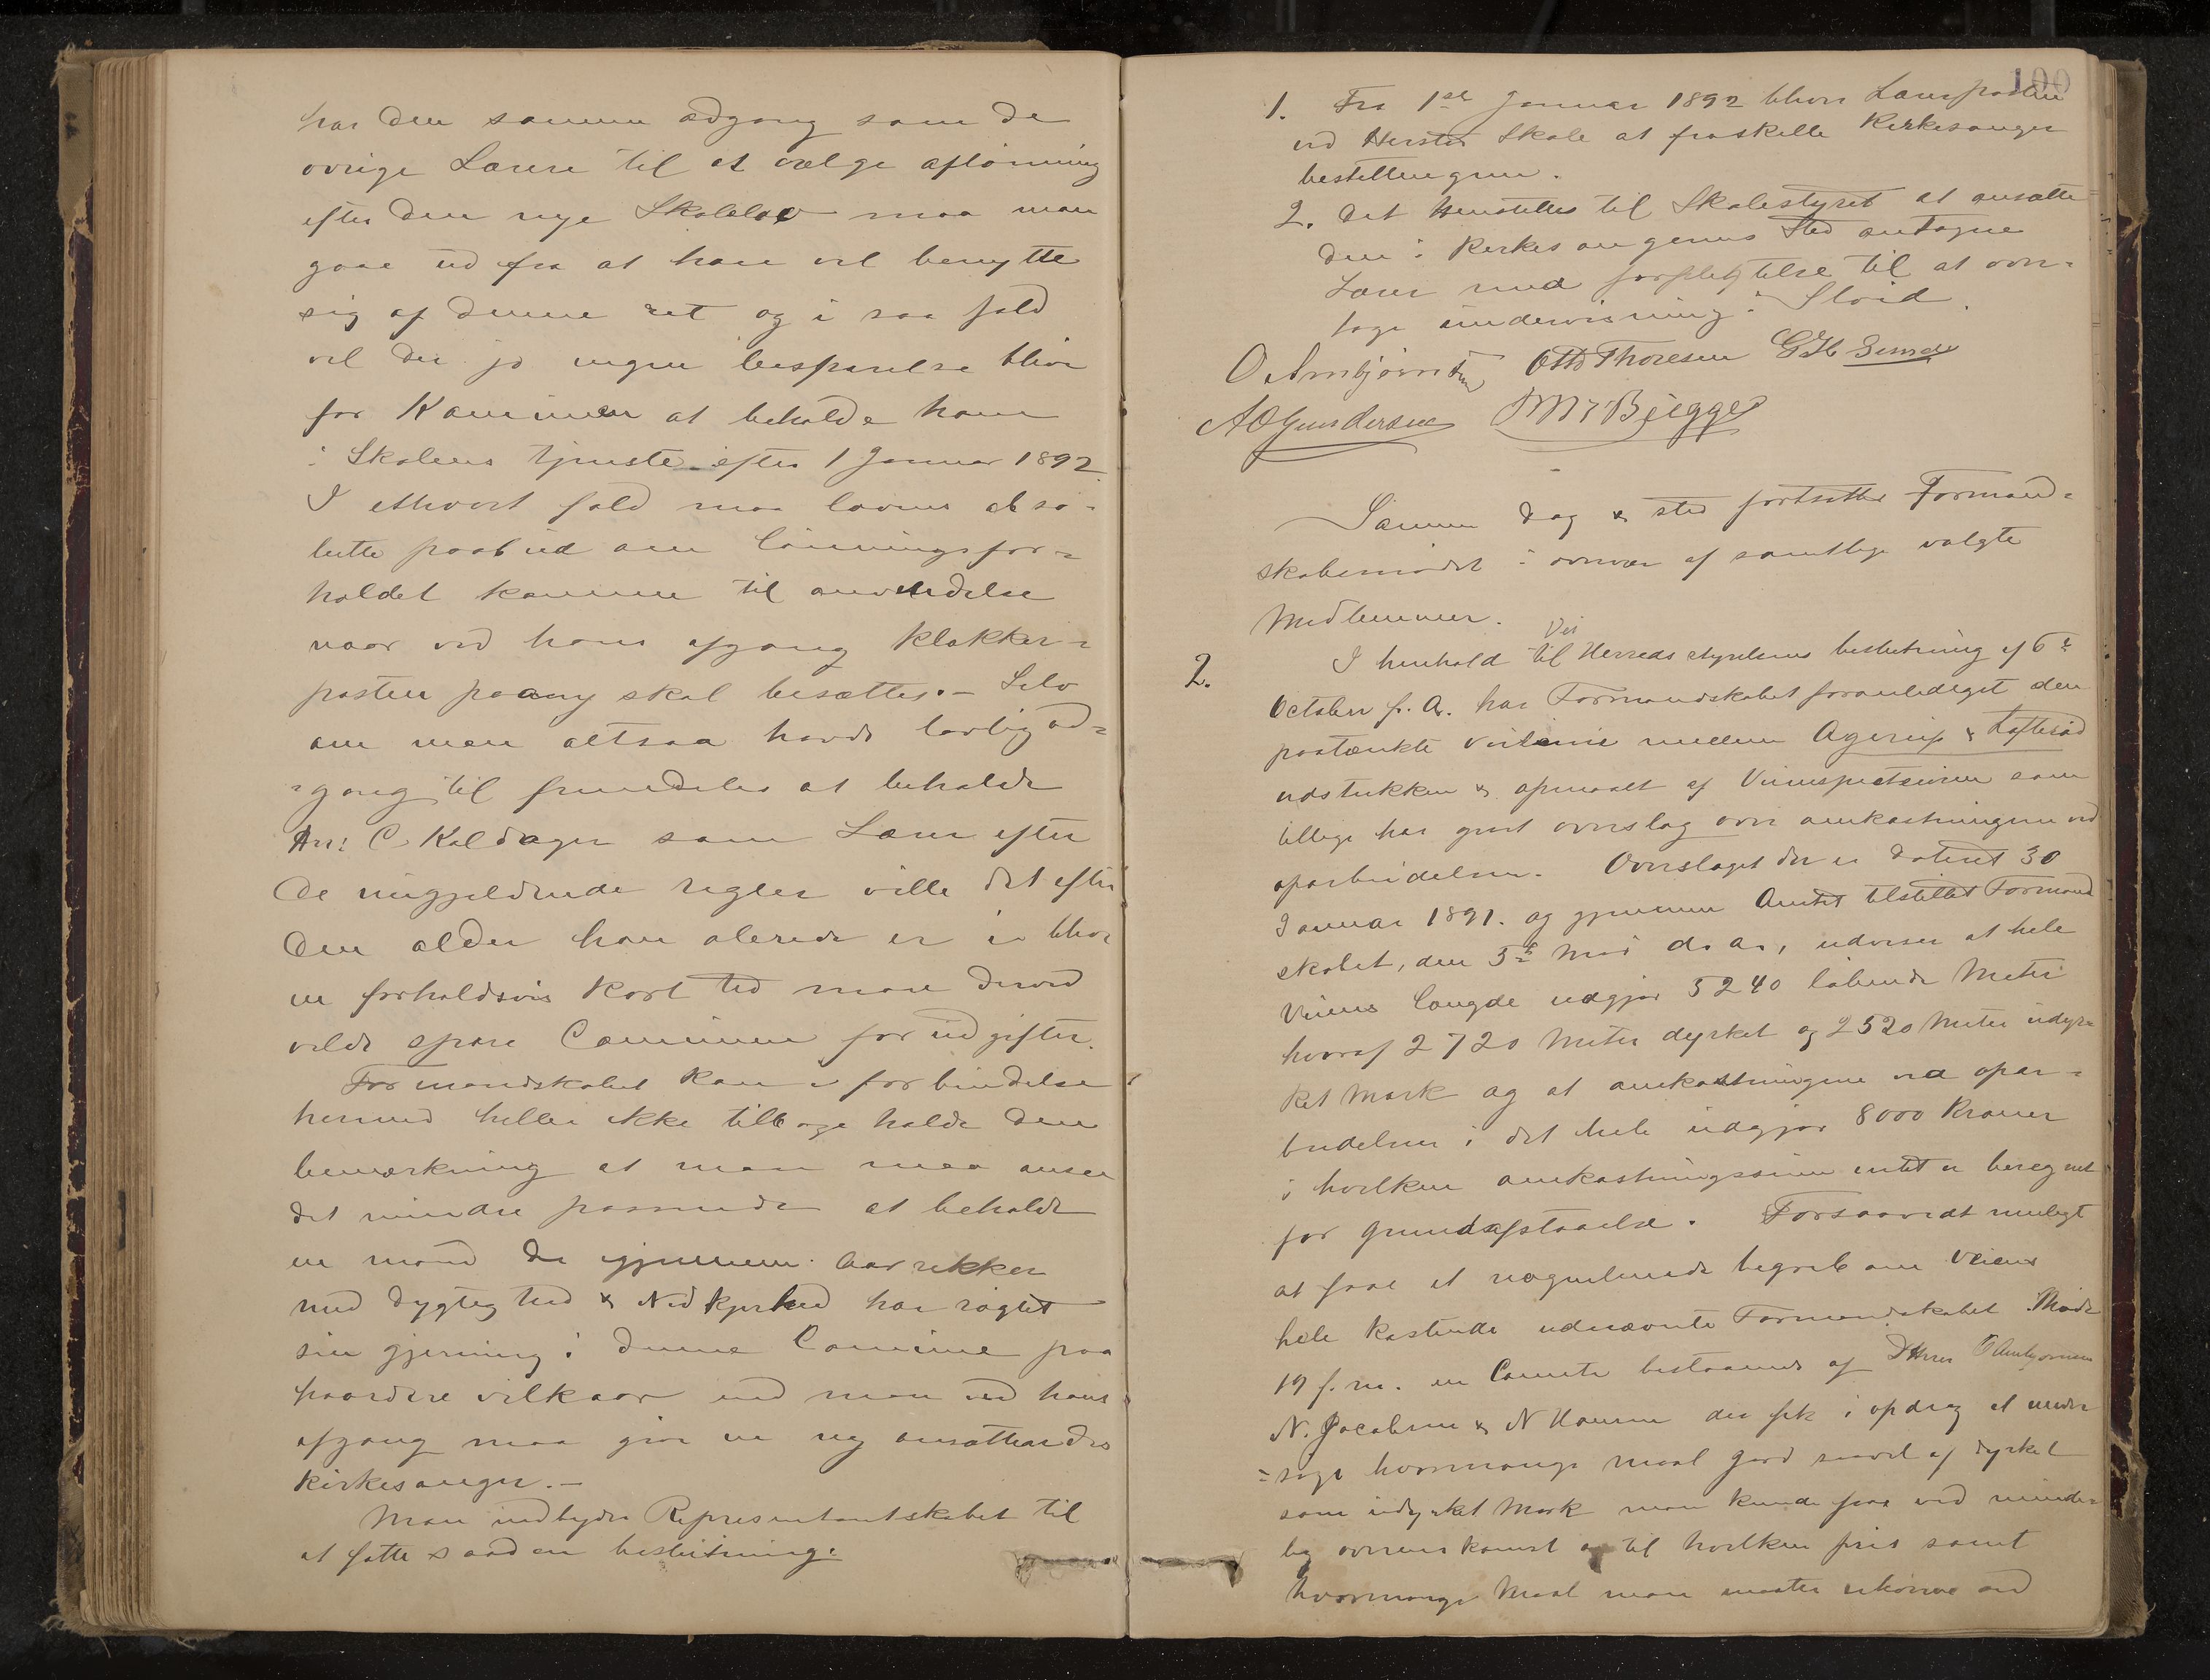 har den samme adgang som de
øvrige Lærere til at vælge aflønning
efter den nye Skolelov maa man
gaae ud fra at han vil benytte
sig af denne ret og i saa fald
vil der jo ingen besparelse blive
for Kommunen at beholde ham
i Skolens tjeneste efter 1 Januar 1892
I ethvert fald maa lovens abso-
lutte paabud om lønningsfor=
holdet komme til anvendelse
naar ved hans afgang Klokker=
posten paany skal besættes. – Selv
om man altsaa havde lovlig ad=
=gang til fremdeles at beholde
Hr: C. Koldager som Lærer efter
de nugjeldende regler ville det efter
den alder han allerede er i blive
en forholdsvis kort tid man derved
vilde spare Communen for udgifter.
Formandskabet kan i forbindelse
hermed heller ikke tilbage holde den
bemærkning at man maa ansee
det mindre passende at beholde
en mand der igjennem aarrekker
med dygtighed & Nidkjerhed har røgtet
sin gjerning i denne Commune paa
haardere vilkaar end man ved hans
afgang maa give en ny ansættendes
Kirkesanger. –
Man indbyder Representantskabet til
at fatte saadan beslutning:
100
1. Fra 1ste Januar 1892 bliver Lærerposten
ved Skole at fraskille Kirkesanger
bestillingen.
2. Det henstilles til Skolestyret at ansætte
den i Kirkesangerens Sted antagne
Lærer med forpligtelse til at over=
tage undervisning i Sløid.
O. Arnbjørnsen Otto Thoresen
A O Gundersen Bjegge
Samme dag & sted fortsættes Formand=
skabsmødet i overvær af samtlige valgte
Medlemmer.
Vei
2.
I henhold til Herredsstyrelsens beslutning af 6te
October f. A. har Formandskabet foranlediget den
paatænkte veilinie mellem Agerup & Løftesød
udstukken & opmaalt af Veiinspecteuren som
tillige har gjort overslag over omkostningerne ved
oparbeidelsen. Overslaget der er dateret 30
Januar 1891. og gjennem Amtet tilstillet Formand
skabet, den 5te Mai d. A., udviser at hele
Veiens længde udgjør 5240 løbende Meter
hvoraf 2720 Meter dyrket og 2520 Meter udyr=
ket Mark og at omkostningerne ved opar=
beidelsen i det hele udgjør 8000 Kroner
i hvilken omkostningssum intet er beregnet
for grundafstaaelse. Forsaavidt muligt
at faae et nogenlunde begreb om Veiens
hele kostende udnævnte Formandskabet i Møde
19 f. m. en Comite bestaaende af DHerrer O Arnbjørnsen
N. Jacobsen & N Hansen der fik i opdrag at under
=søge hvormange maal Jord saavel af dyrket
som udyrket Mark man kunde faae ved minde=
lig overenskomst og til hvilken pris samt
hvormange Maal man maatte erhverve ved